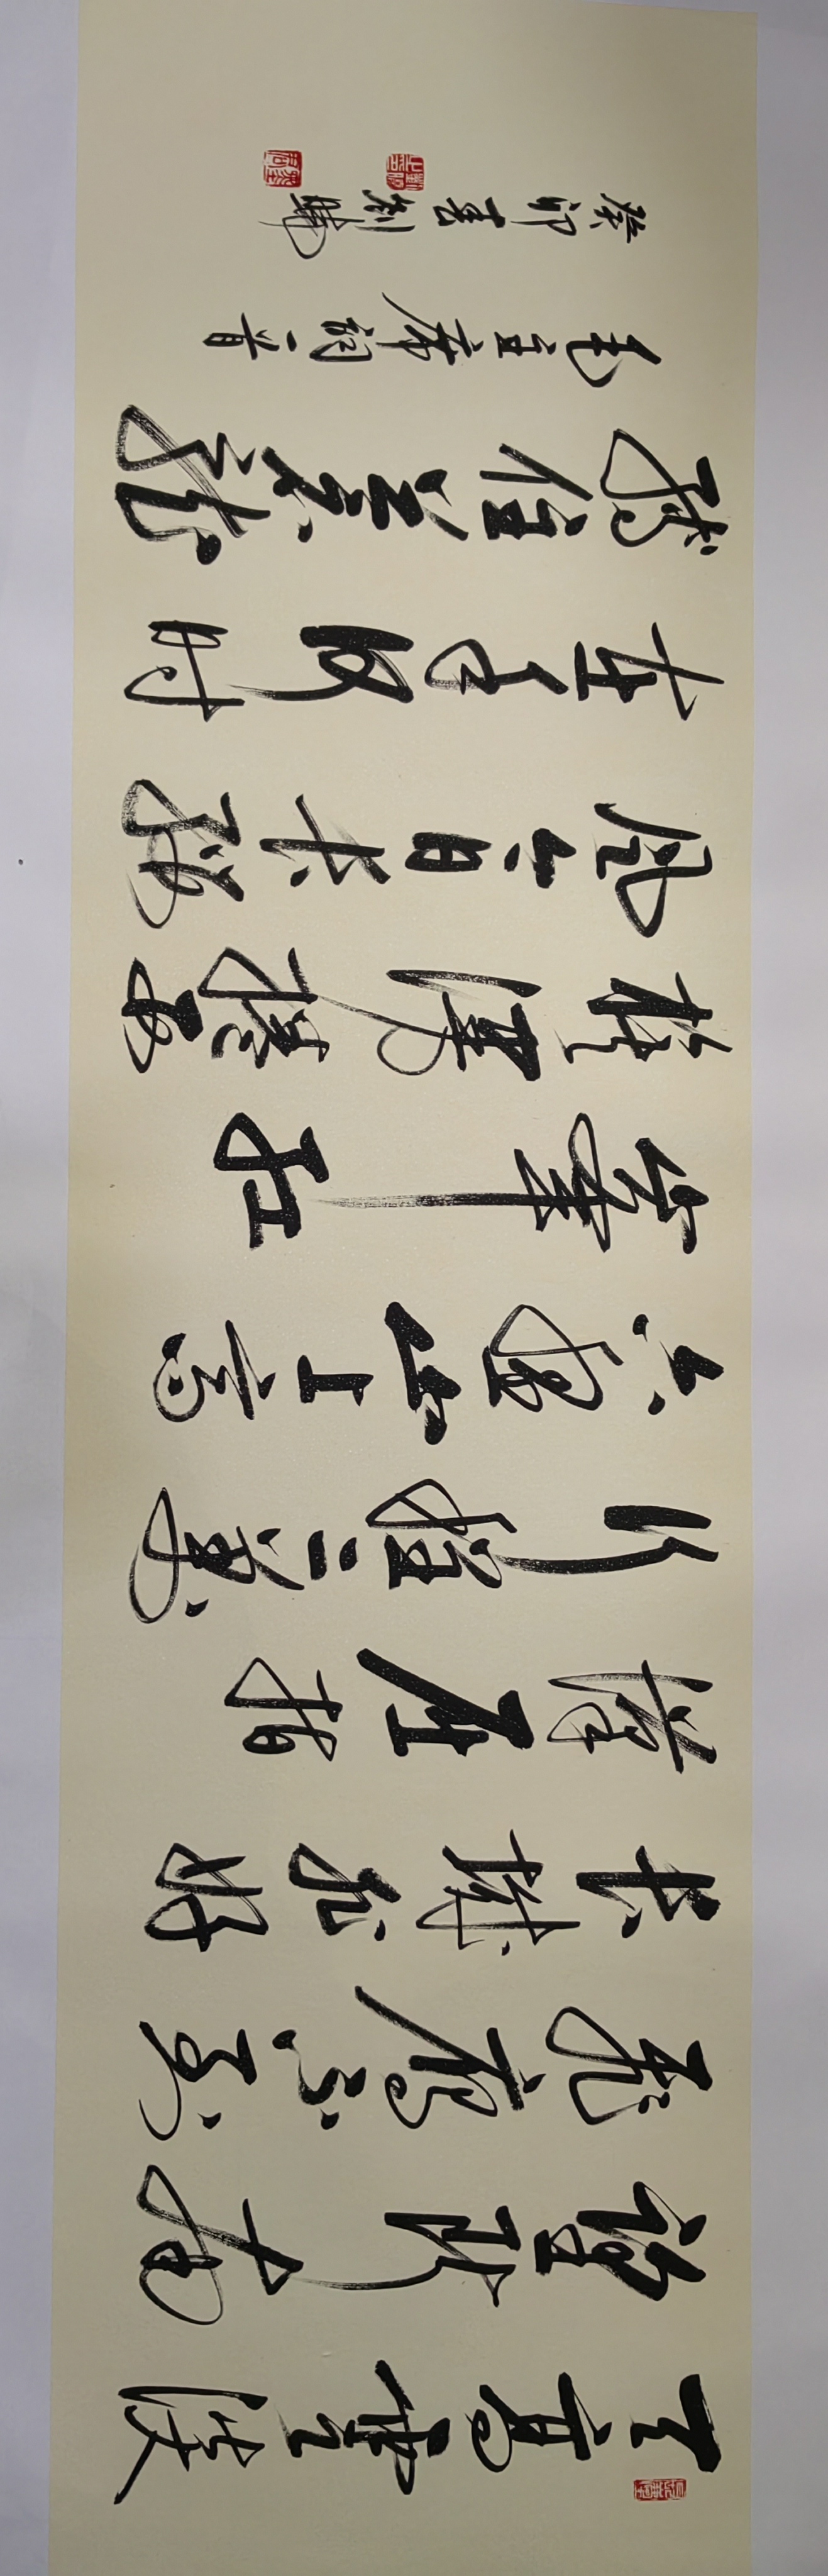 天高雲淡
望断南
飛雁不到
长城非好
漢屈指
行程二萬
六盘山上高
峯红
旗漫捲西
风今日长缨
在手何时
缚住蒼龍
毛主席词一首
癸卯夏